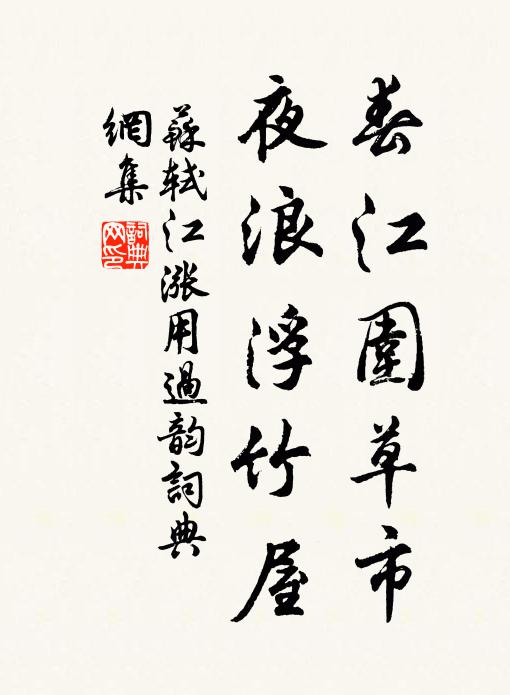 春江圍草市
夜浪浮竹屋
蘇軾江漲用過韵詞典
網集
詞典网印